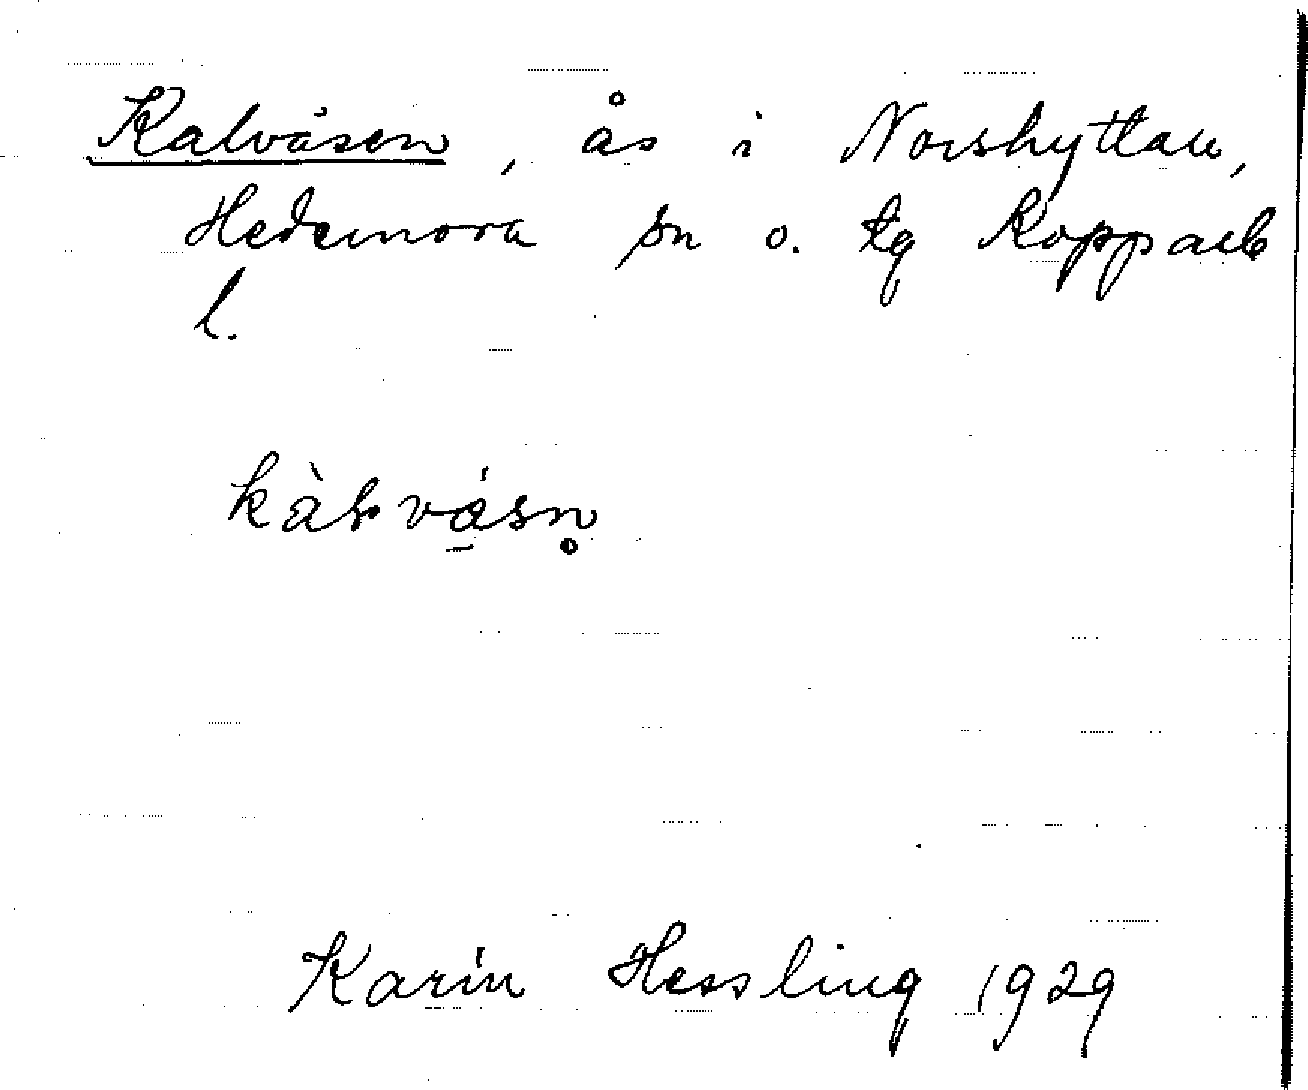 Kalvåsen, ås i Norshyttan,
Hedemora sn o. tg Kopparb
l.
Karin Hessling 1929